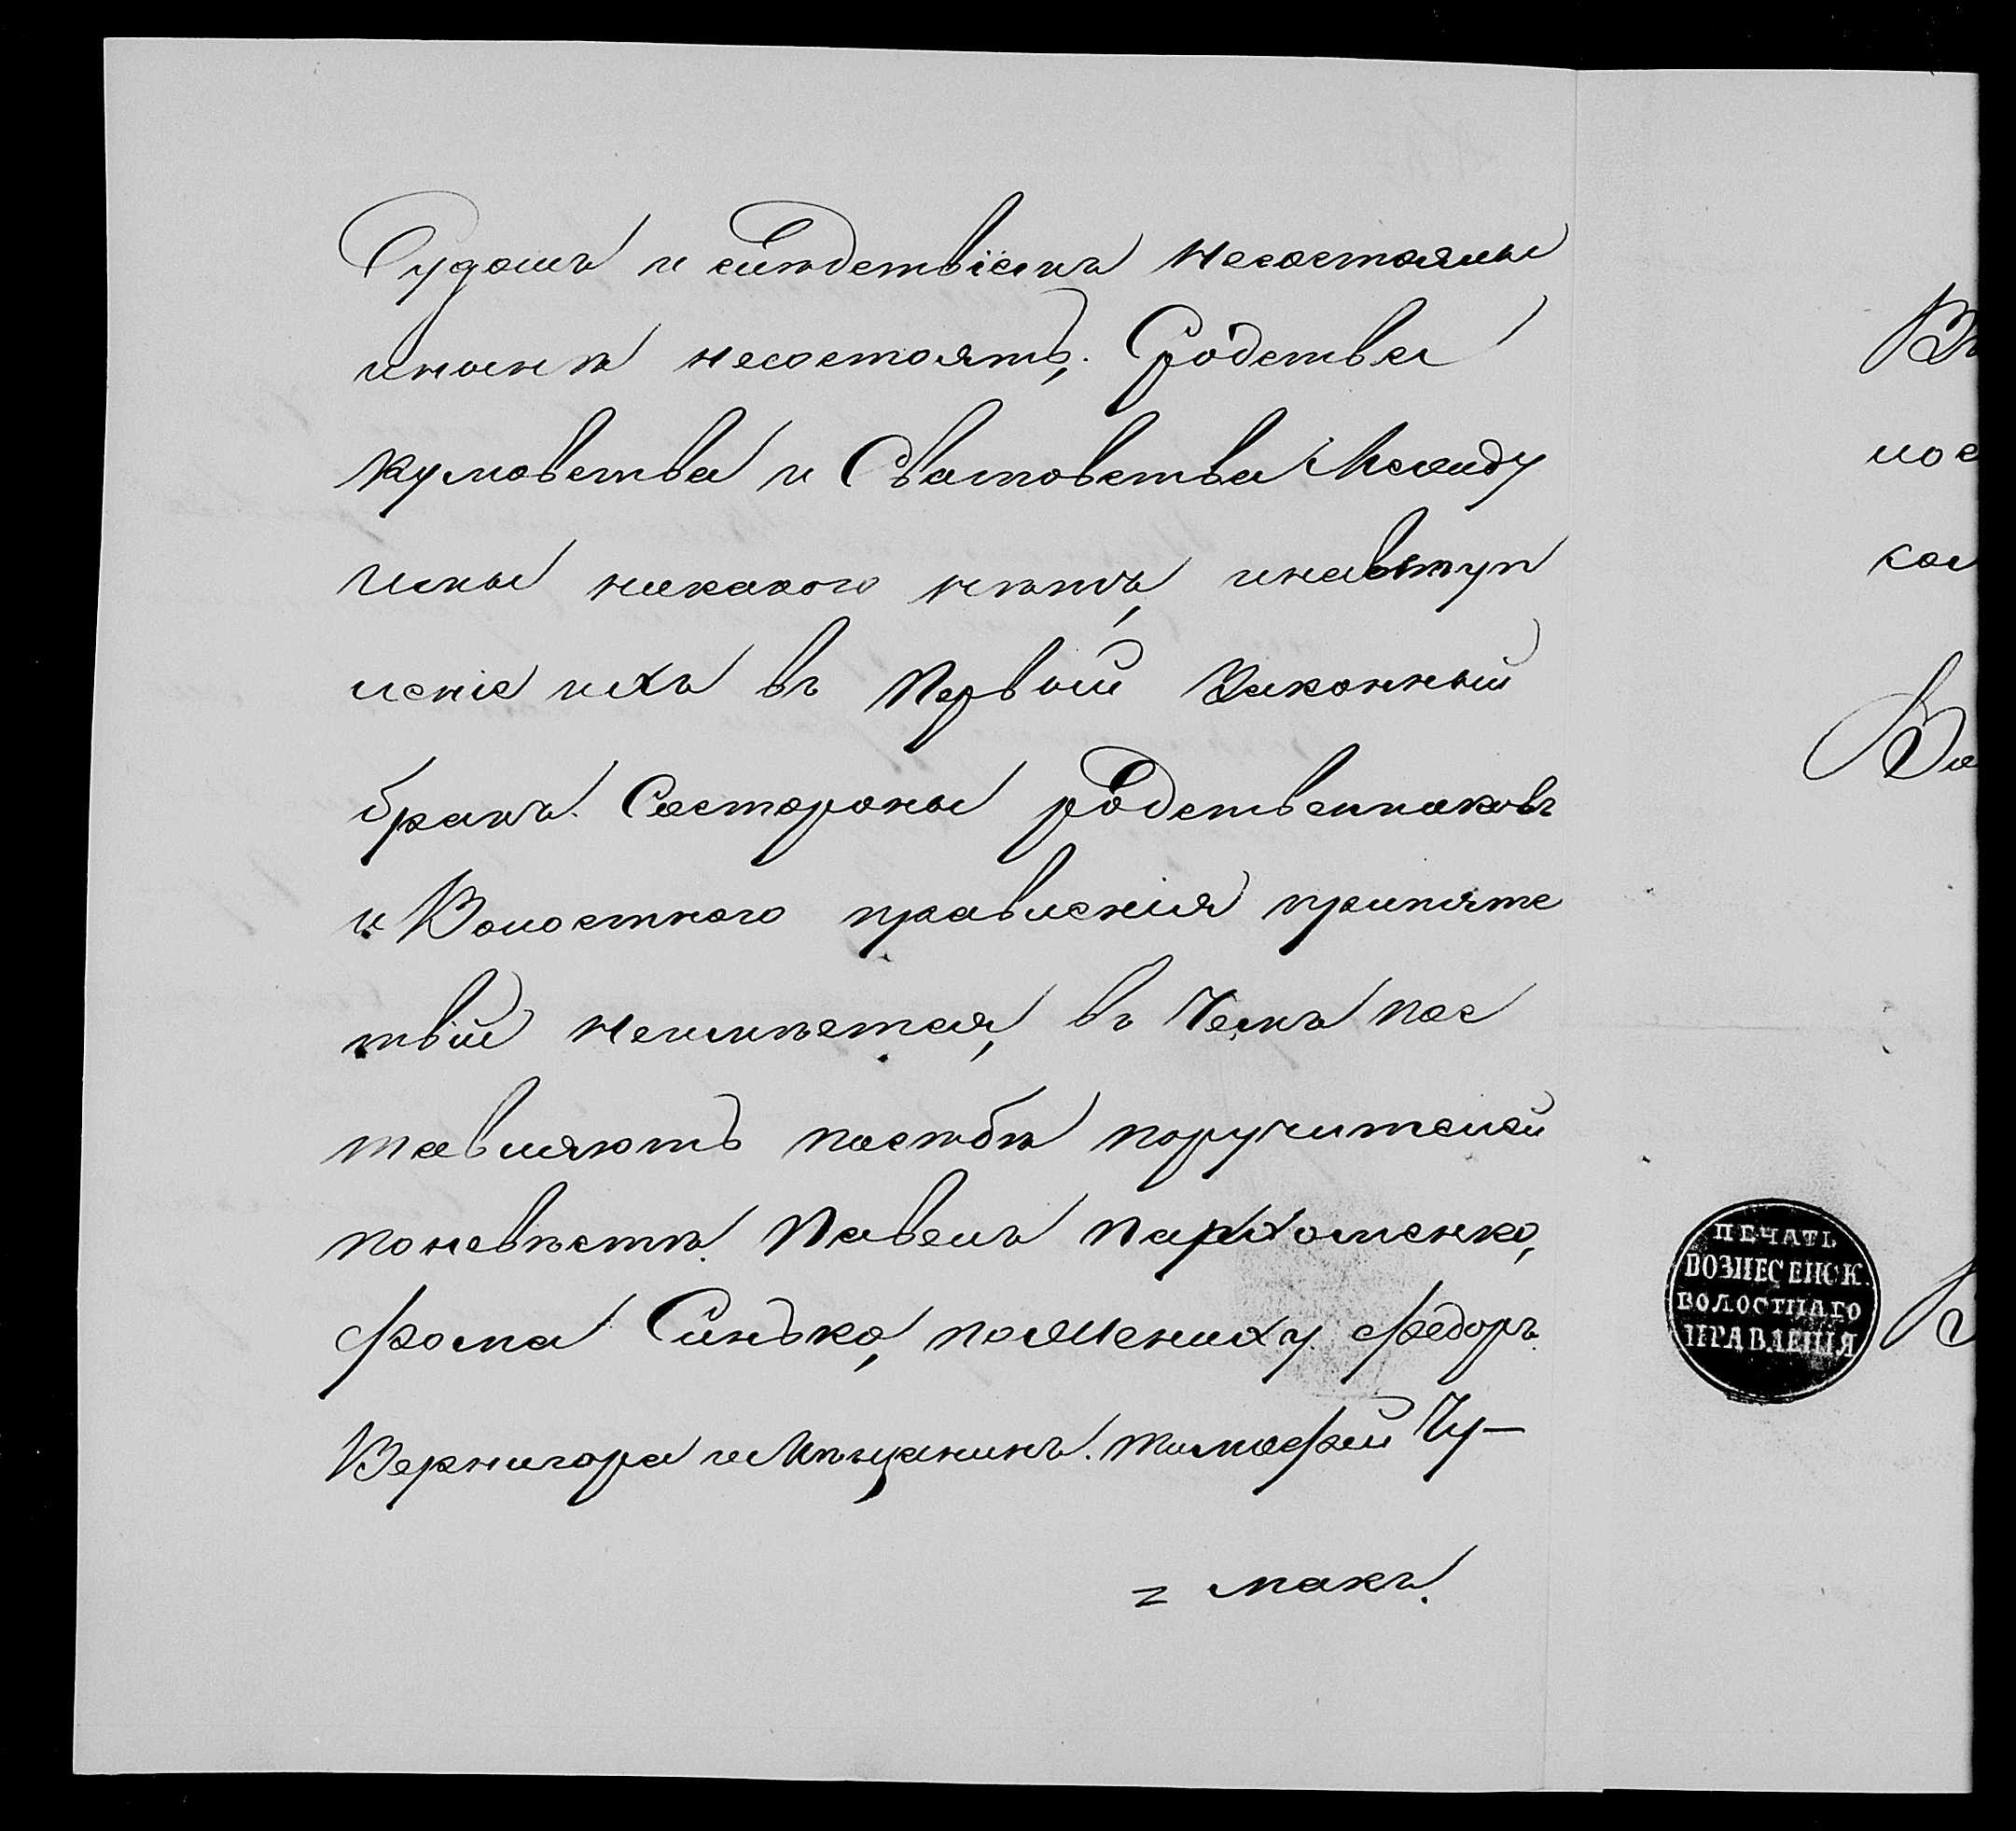 Судомъ и слѣдствіемъ несостояли
инынѣ несостоятъ, Сродства
кумовства и Сватовства Между
ими никакого нѣтъ, инавступ
леніе ихъ въ Первый Законный
бракъ. Состороны родственниковъ
и Волостного правленія припятс
твій неимѣется, въ Чемъ пос
тавляютъ постбѣ поручителей
поневѣстѣ. Павелъ Пархоменко,
Фома Синько, пожениху. Федоръ.
Вернигора и Мѣщанинъ. Тимофей Чу-
= макъ.
Въ
мос
кол
Во
В
ПЕЧАТЬ
ВОЗНЕСЕНСК.
ВОЛОСТНАГО
ПРАВЛЕНІЯ